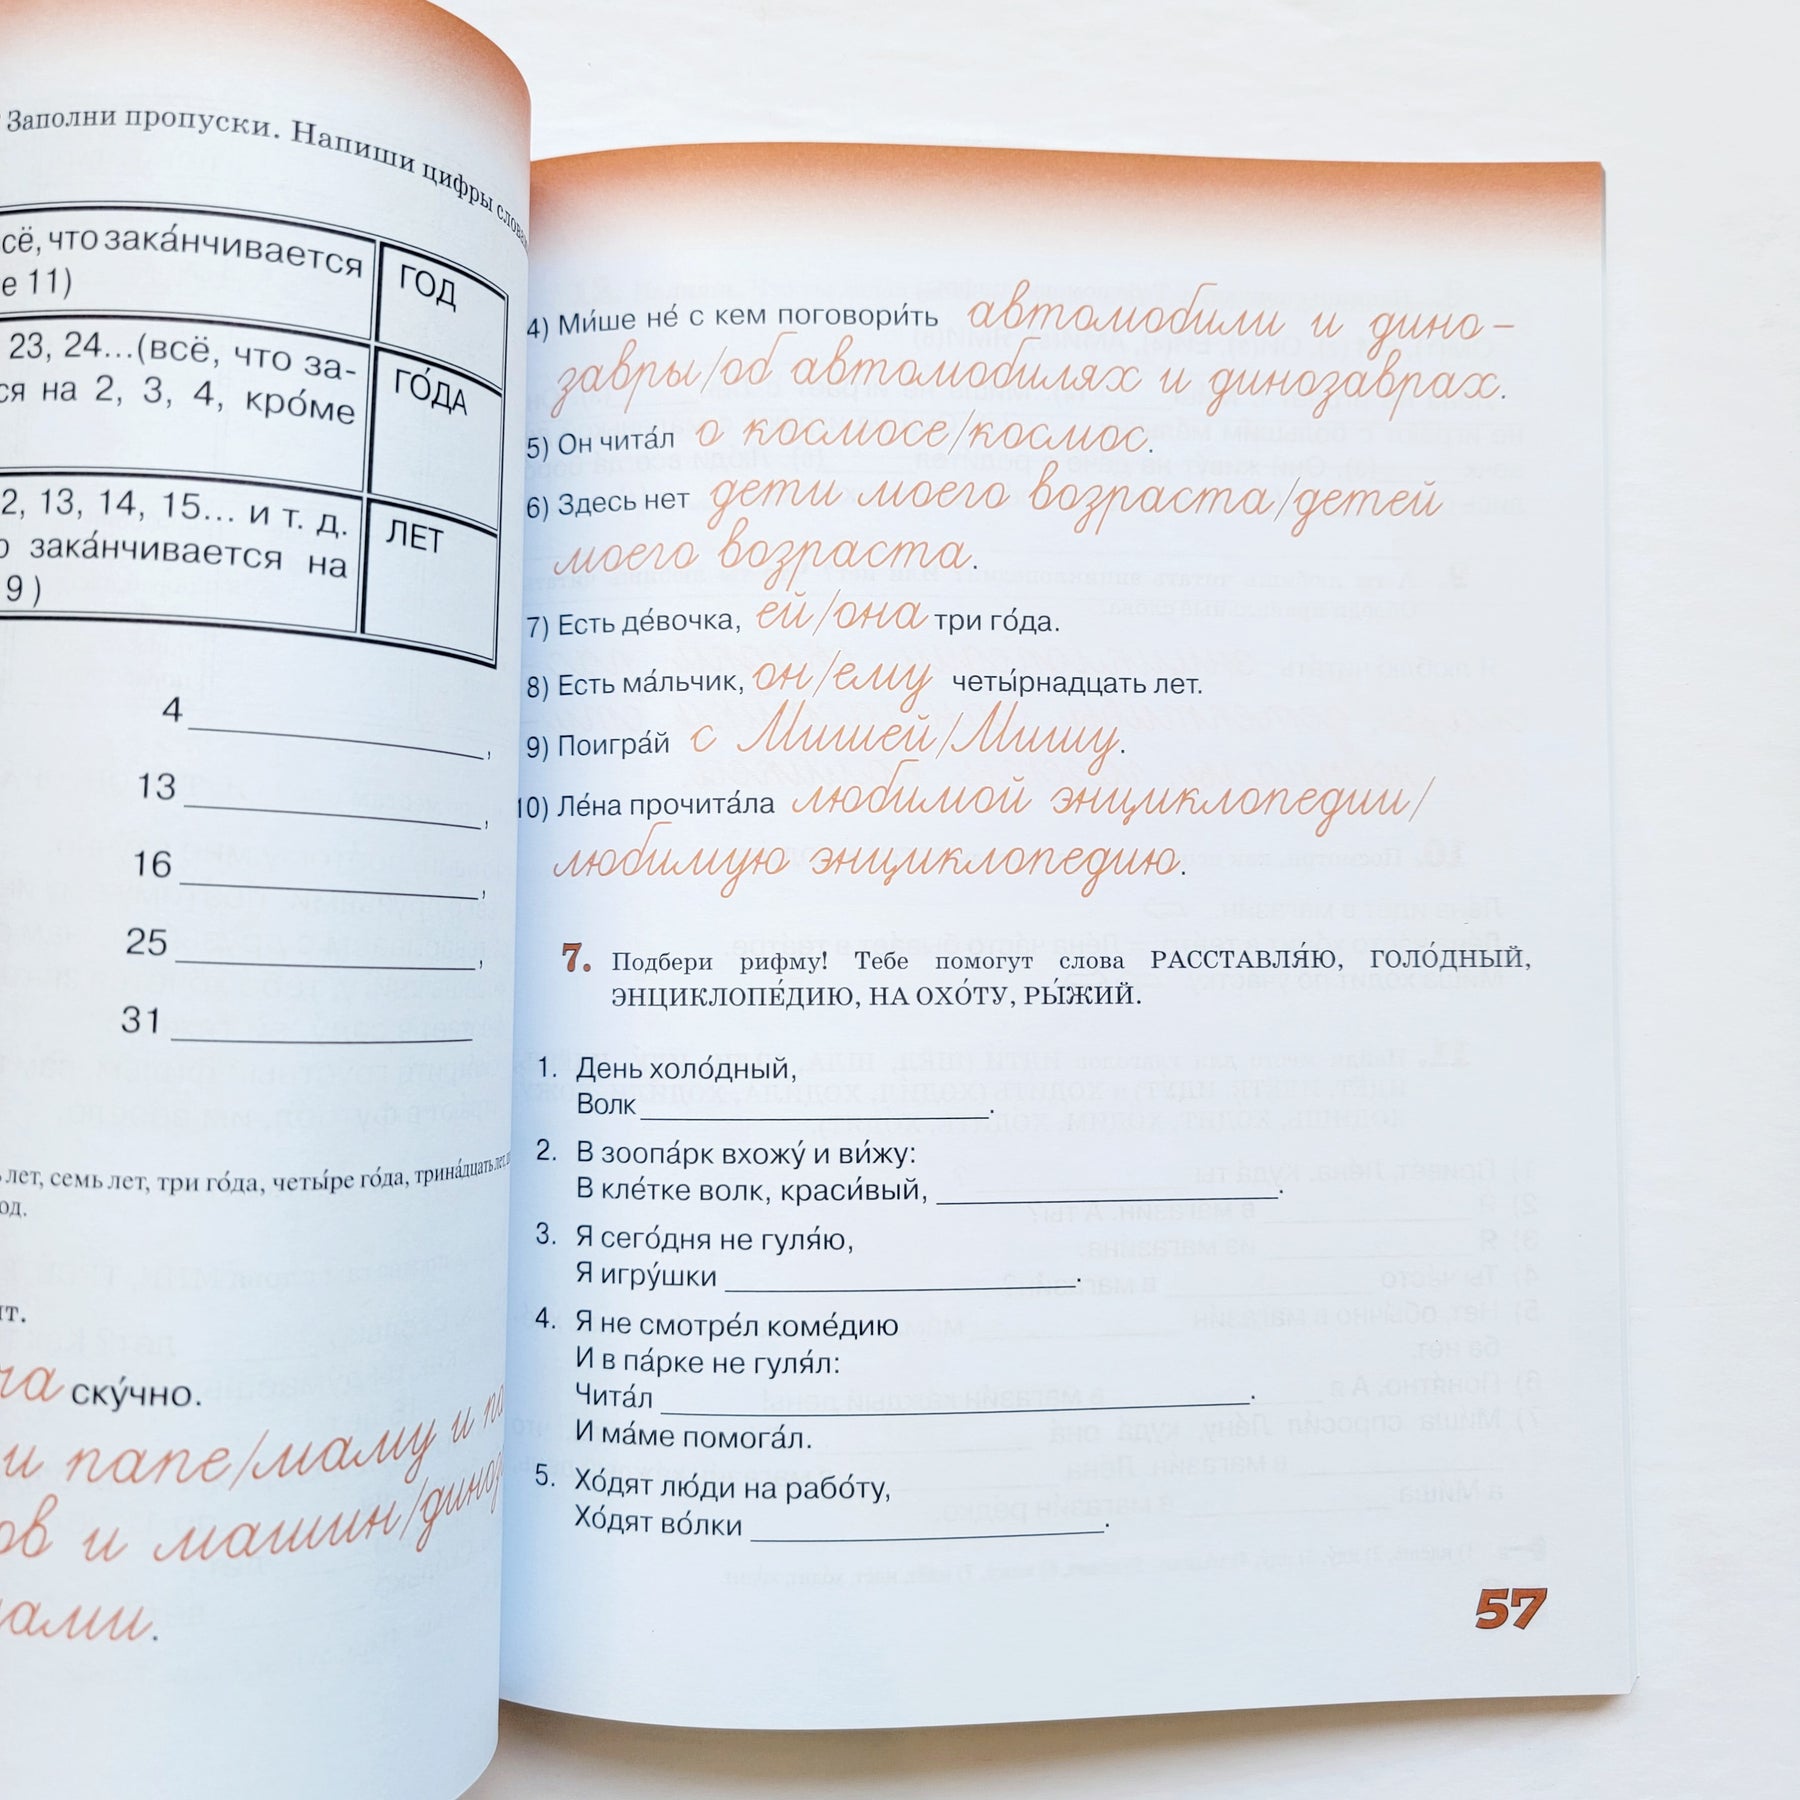 Заполни пропуски. Напиши цифры словами
сё, что зака́нчивается
е 11)
ГОД
23, 24...(всё, что за-
ся на 2, 3, 4, кро́ме
ГО́ДА
2, 13, 14, 15... и т. д.
о зака́нчивается на
9)
ЛЕТ
4 ,
13 ,
16 ,
25 ,
31
лет, семь лет, три го́да, четы́ре го́да, трина́дцать лет,
од.
ит.
ску́чно.
и папе/маму и па
ов и машин/диноз
ами.
4) Ми́ше не́ с кем поговори́ть автомобили и дино-
завры/об автомобилях и динозаврах.
5) Он чита́л о космосе/космос.
6) Здесь нет дети моего возраста/детей
моего возраста.
7) Есть де́вочка, ей/она три го́да.
8) Есть ма́льчик, он/ему четы́рнадцать лет.
9) Поигра́й с Мишей/Мишу.
10) Ле́на прочита́ла любимой энциклопедии/
любимую энциклопедию.
7. Подбери рифму! Тебе помогут слова РАССТАВЛЯ́Ю, ГОЛО́ДНЫЙ,
ЭНЦИКЛОПЕ́ДИЮ, НА ОХО́ТУ, РЫ́ЖИЙ.
1. День холо́дный,
Волк .
2. В зоопа́рк вхожу́ и ви́жу:
В кле́тке волк, краси́вый, .
3. Я сего́дня не гуля́ю,
Я игру́шки .
4. Я не смотре́л коме́дию
И в па́рке не гуля́л:
Чита́л .
И ма́ме помога́л.
5. Хо́дят лю́ди на рабо́ту,
Хо́дят во́лки .
57